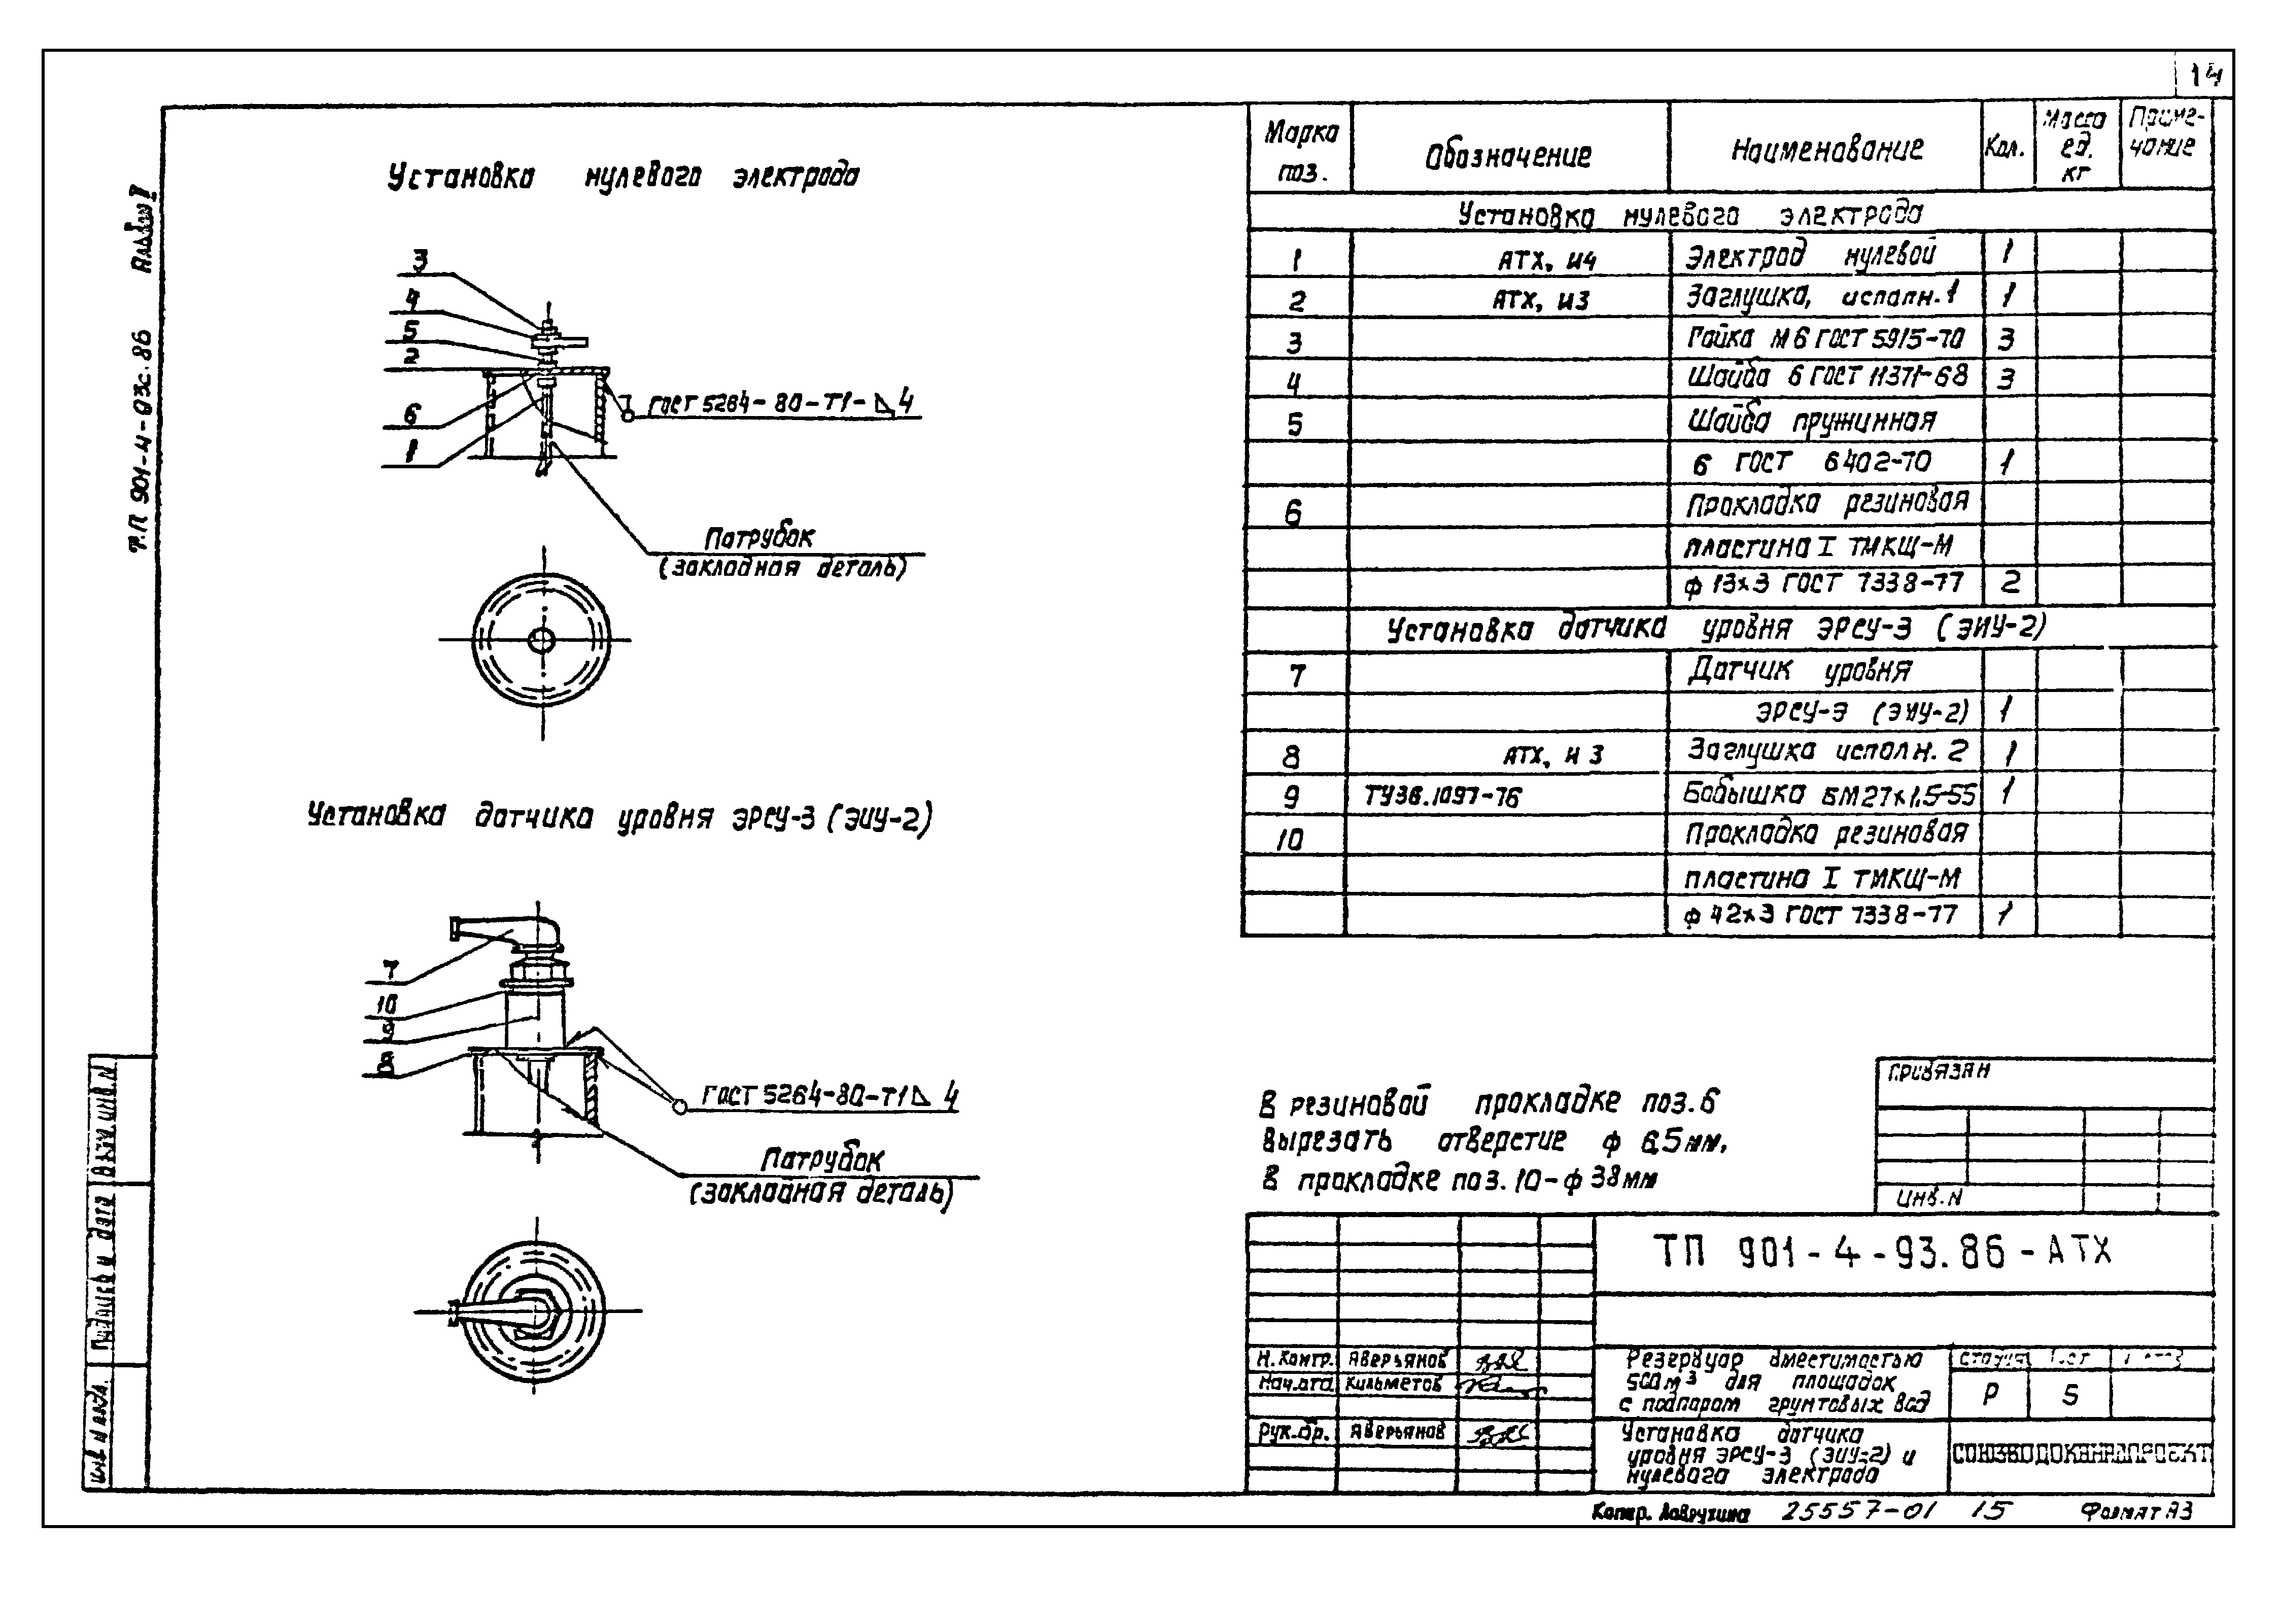 14
Т.П 901-4-93с.86 Альбом I
Установка нулевого электрода
3
4
5
2
6
1
ГОСТ 5264-80-Т1-△4
Патрубок
(закладная деталь)
Установка датчика уровня ЭРСУ-3 (ЭИУ-2)
7
10
9
8
ГОСТ 5264-80-Т1△ 4
Патрубок
(закладная деталь)
Марка поз. Обозначение Наименование Кол. Масса ед. кг Приме-чание
Установка нулевого электрода
1 АТХ, И4 Электрод нулевой 1
2 АТХ, И3 Заглушка, исполн. 1 1
3 Гайка М6 ГОСТ 5915-70 3
4 Шайба 6 ГОСТ 11371-68 3
5 Шайба пружинная
6 ГОСТ 6402-70 1
6 Прокладка резиновая
пластина I ТМКЩ-М
ф 13х3 ГОСТ 7338-77 2
Установка датчика уровня ЭРСУ-3 (ЭИУ-2)
7 Датчик уровня
ЭРСУ-Э (ЭИУ-2) 1
8 АТХ, И 3 Заглушка исполн. 2 1
9 ТУ36.1097-76 Бобышка БМ27х1,5-55 1
10 Прокладка резиновая
пластина I ТМКЩ-М
ф 42х3 ГОСТ 7338-77 1
В резиновой прокладке поз. 6
вырезать отверстие ф 6,5мм,
в прокладке поз. 10-ф 38мм
Привязан
Инв. N
ТП 901-4-93.86-АТХ
Н. Контр. Аверьянов
Нач.отд Кильметов
Рук.бр. Аверьянов
Резервуар вместимостью
500м³ для площадок
с подпором грунтовых вод
Стадия Лист Листов
Р 5
Установка датчика
уровня ЭРСУ-3 (ЭИУ-2) и
нулевого электрода
СОЮЗВОДОКАНАЛПРОЕКТ
Взам. инв. N
Подпись и дата
Инв. N подл.
Копир. Лаврухина 25557-01 15 Формат А3